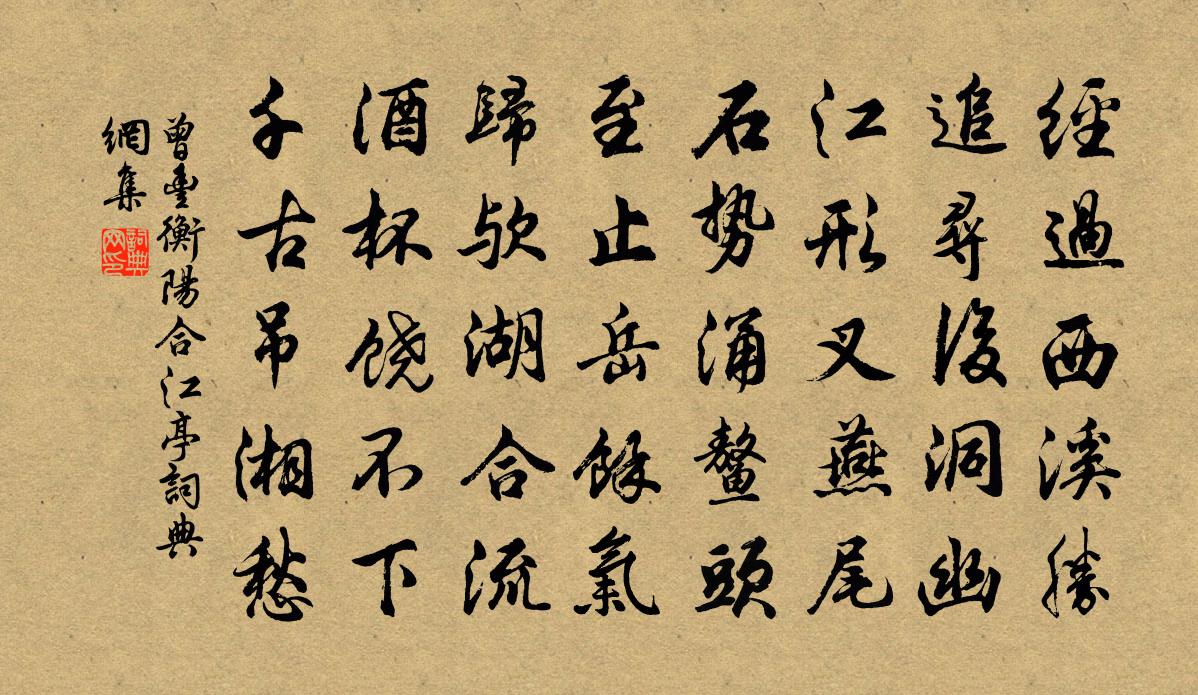 經過西溪勝
追尋後洞幽
江形叉燕尾
石勢涌鼇頭
至止岳餘氣
歸歟湖合流
酒杯饒不下
千古吊湘愁
曾豐衡陽合江亭詞典
網集
詞典
网印